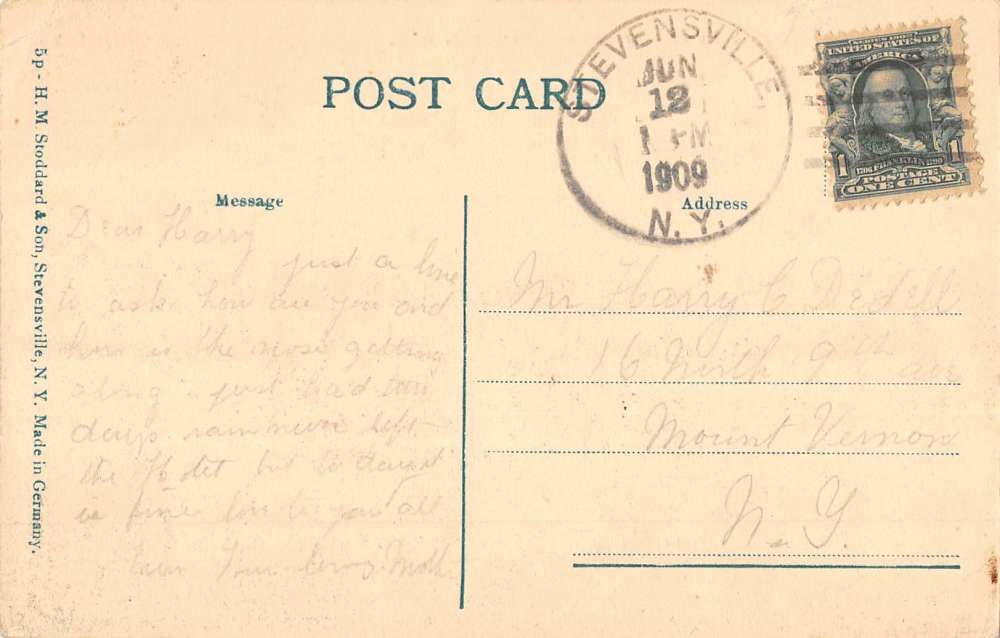 POST CARD
STEVENSVILLE
JUN
12
PM
1909
N. Y.
SERIES 1902
UNITED STATES OF
AMERICA
1706 FRANKLIN 1790
1 POSTAGE 1
ONE CENT
5p - H. M. Stoddard & Son, Stevensville, N. Y. Made in Germany.
Message
Dear Harry
just a line
to ask how are you and
how is the nose getting
along. just had two
days rain never left
the Hotel but to
is fine love to you all
Your loving Moth
Address
Mr Harry C
16 North 9th ave
Mount Vernon
N. Y.